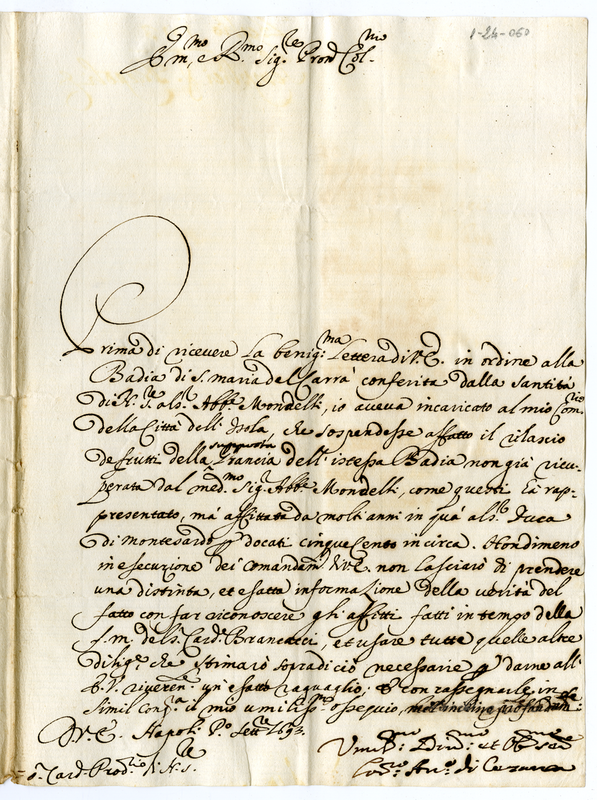 1-24-060
Em.mo e R.mo Sig.re Pron Col.mo
Prima di ricevere La benig.ma Lettera di V.E. in ordine alla
Badia di S. Maria del Carrà conferita dalla Santità
di N. S.re al S.r Abb.e Mondelli, io aveva incaricato al mio Com.rio
della Città dell' Isola, che sospendesse affatto il rilascio
de frutti della supposta Grancia dell' istessa Badia non già ricu-
perata dal med.mo Sig.r Abb.e Mondelli, come questi hà rap-
presentato, mà affittata da molti anni in quà al S.r Duca
di Montesardo p docati cinque Cento in circa. Nondimeno
in esecuzione dei comandam.ti di V.E. non lasciarò di prendere
una distinta, et esatta informazione della verità del
fatto con far riconoscere gli affitti fatti in tempo della
f. m. del S.r Card.l Brancacci, et usare tutte quelle altre
dilig.e che stimarò sopra di ciò necessarie p darne all'
E.V. riveren.te un' esatto raguaglio; E con rassegnarle in
simil cong.a il mio umiliss.mo ossequio,
D. V. E. Napoli P.o Sett.re 1693.
Umil.mo Div.mo et Obl.mo Ser.re
S.r Card. Prod.rio di N. S.re